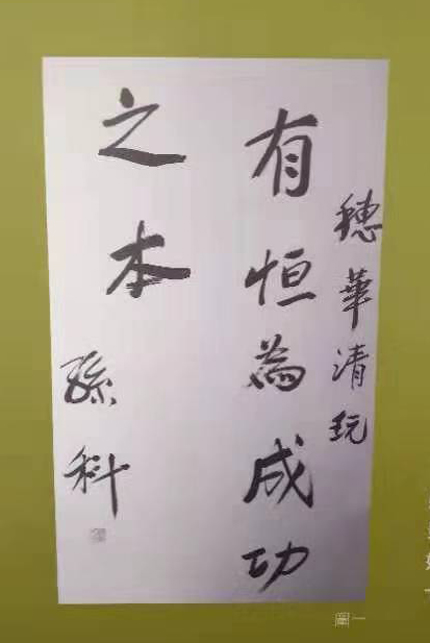 穗華清玩
有恒為成功
之本
孫科
圖一